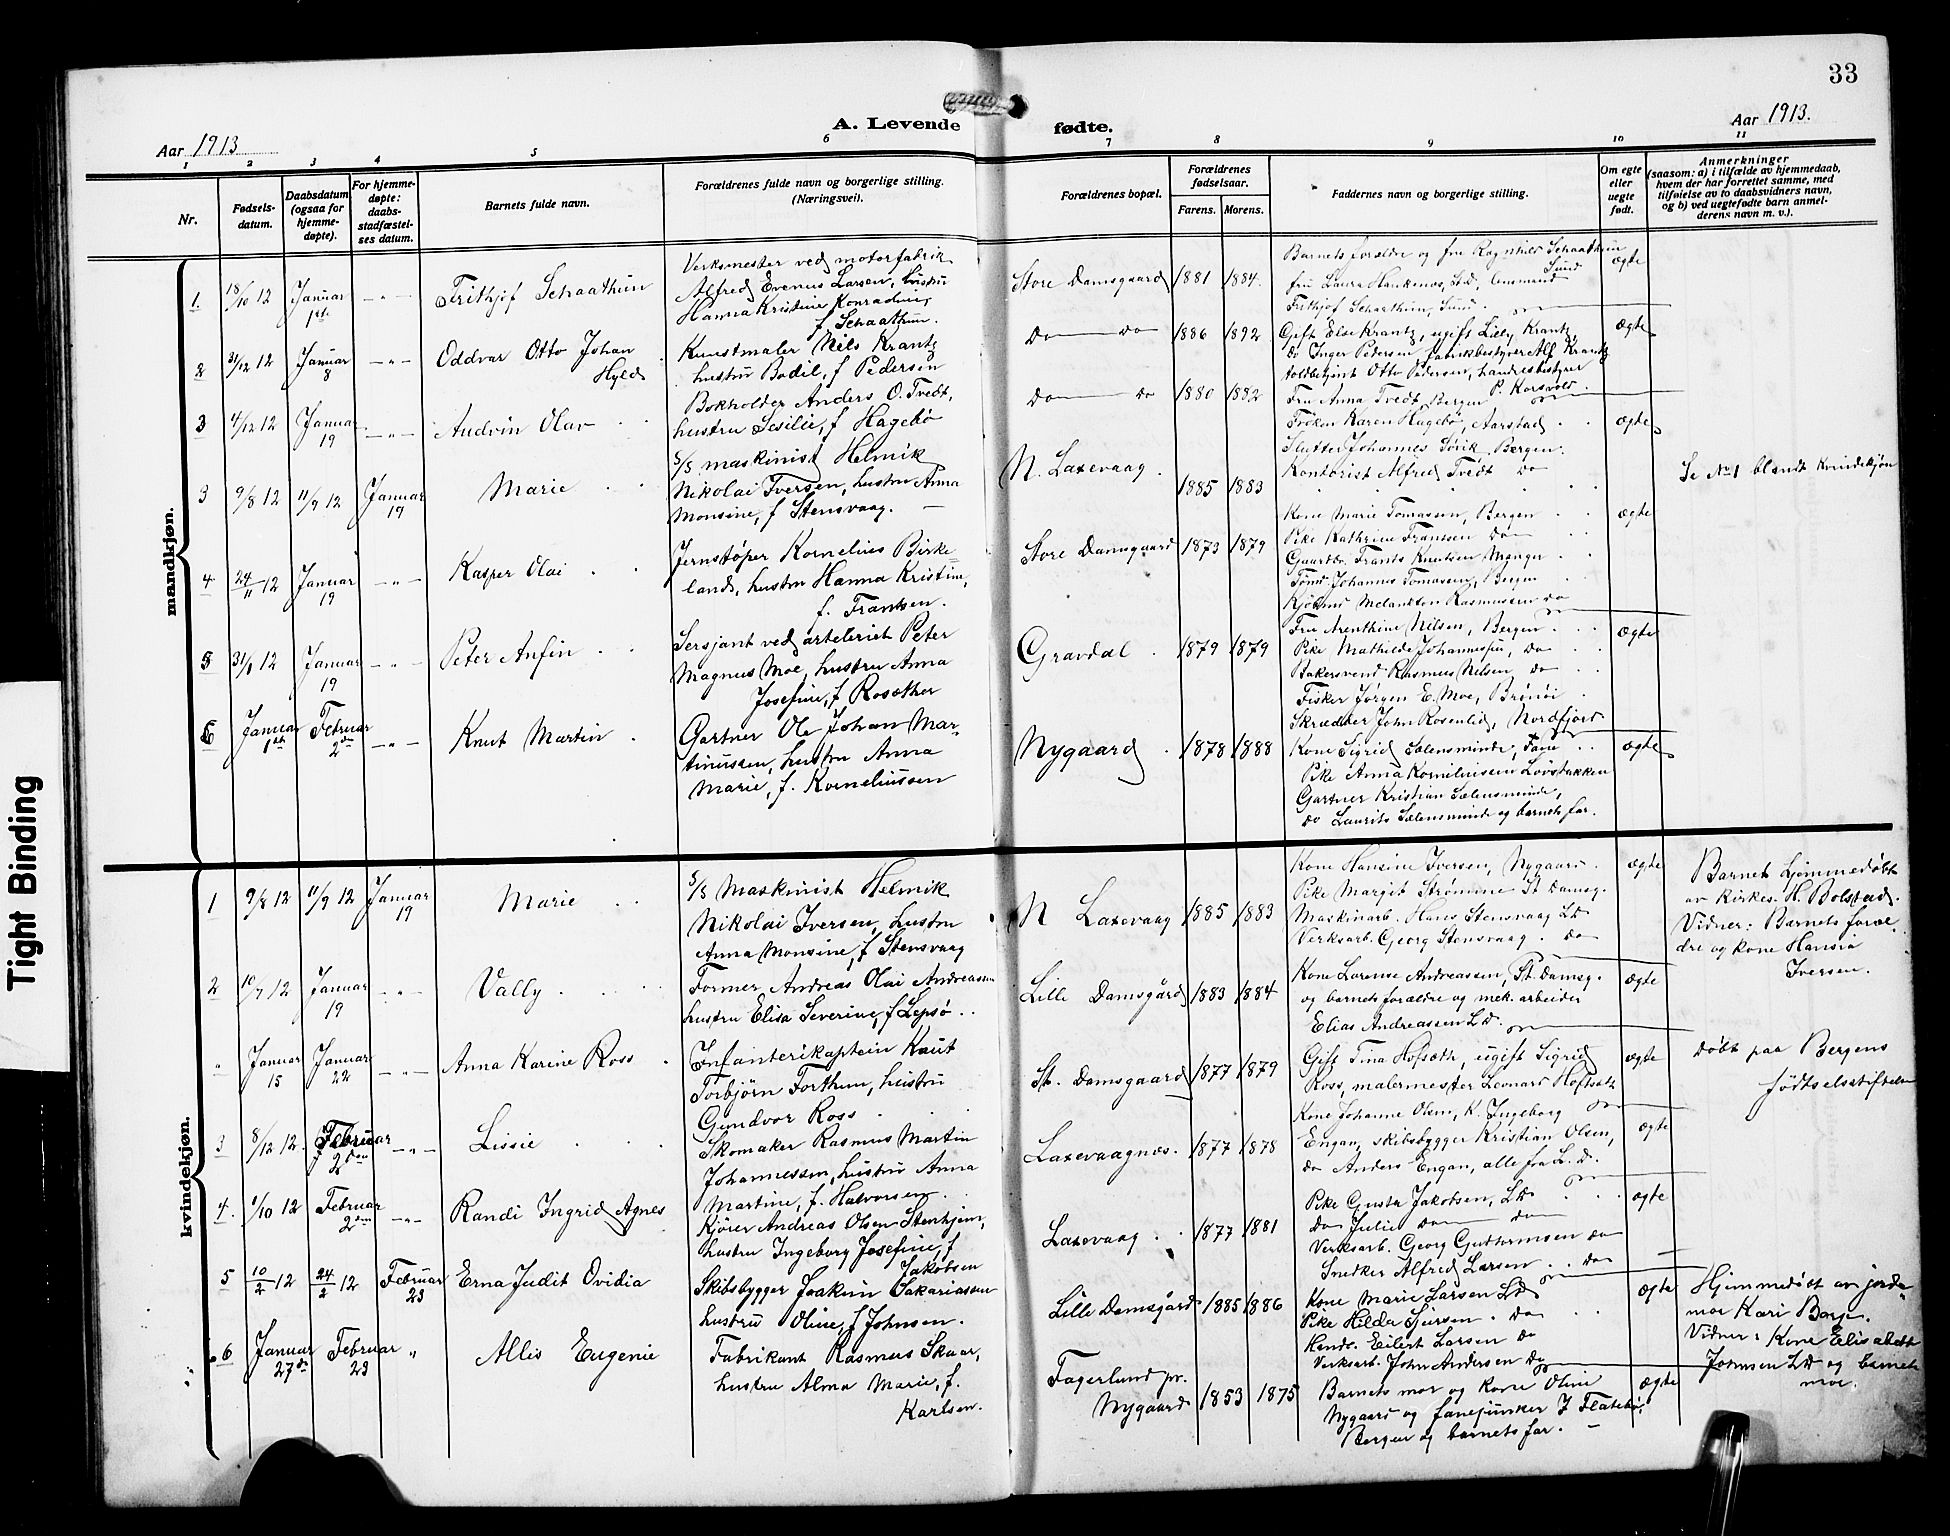 33
A. Levende fødte.
Aar 1913
Aar 1913.
1 2 3 4 5 6 7 8 9 10 11
Nr.
Fødsels-
datum.
Daabsdatum
(ogsaa for
hjemme-
døpte).
For hjemme-
døpte:
daabs-
stadfæstel-
ses datum.
Barnets fulde navn.
Forældrenes fulde navn og borgerlige stilling.
(Næringsvei).
Forældrenes bopæl.
Forældrenes
fødselsaar.
Farens. Morens.
Faddernes navn og borgerlige stilling.
Om egte
eller
uegte
født.
Anmerkninger
(saasom: a) i tilfælde av hjemmedaab,
hvem der har forrettet samme, med
tilføielse av to daabsvidners navn,
og b) ved uegtefødte barn anmel-
derens navn m. v.).
mandkjøn.
1 18/10 12 Januar 1ste -"- Frithjof Schaathun
Verksmester ved motorfabrik
Alfred Evenus Larsen, hustru
Hanna Kristine Konradine,
f Schaathun.
Store Damsgaard 1881 1884.
Barnets forældre og fru Ragnhild Schaathun
fru Laura Haukenæs, St.D,
Sund
Frithjof Schaathun, Sund.
ægte
2 31/12 12 Januar 8 -"- Oddvar Otto Johan
Hyld
Kunstmaler Nils Krantz
hustru Bodil, f Pedersen
Do Do 1886 1892
Gift Else Krantz, ugift Lilly Krantz,
do Inger Pedersen, fabrikbestyrer Alf Krantz
toldbetjent Otto Pedersen, handelsbestyrer
P. Korsvold.
ægte
3 4/12 12 Januar 19 -"- Audvin Olav
Bokholder Anders O. Tvedt,
hustru Sesilie, f Hagebø
Do Do 1880 1882
Fru Anna Tvedt, Bergen
Frøken Karen Hagebø, Aarstad
Slutter Johannes Sørik, Bergen.
Kontorist Alfred Tvedt Do
ægte
3 9/8 12 11/9 12 Januar 19 Marie
S/S maskinist Helmik
Nikolai Iversen, hustru Anna
Monsine, f Stensvaag.
N. Laxevaag. 1885 1883
Se No 1 blandt kvindekjøn
4 24/11 12 Januar 19 -"- Kasper Olai
Jernstøper Kornelius Birke
land, hustru Hanna Kristine,
f. Frantsen.
Store Damsgaard 1873 1879
Kone Marie Tomassen, Bergen
Pike Kathrine Frantsen Do
Gaardbr. Frants Knutsen Manger
Tømd. Johannes Tomassen, Bergen
Kjøbmd Melankton Rasmussen do
ægte
5 31/8 12 Januar 19 -"- Peter Anfin
Sersjant ved arteleriet Peter
Magnus Moe, hustru Anna
Josefine, f Rosæther
Gravdal 1879 1879
Fru Arenthine Nilsen, Bergen
Pike Mathilde Johannesen, do
Bakersvend Rasmus Nilsen, do
Fisker Jørgen E. Moe, Brønøi
Skrædder John Rosenlid, Nordfjord
ægte
6 Januar 1ste Februar 2den -"- Knut Martin
Gartner Ole Johan Mar-
tinussen, hustru Anna
Marie, f. Korneliussen
Nygaard 1878 1888
Kone Sigrid Sælensminde, Fane
Pike Anna Korneliussen Løvstakken
Gartner Kristian Sælensminde,
do Laurits Sælensminde og barnets far.
ægte
kvindekjøn.
1 9/8 12 11/9 12 Januar 19 Marie
S/S Maskinist Helmik
Nikolai Iversen, hustru
Anna Monsine, f Stensvaag
N Laxevaag 1885 1883
Kone Hansine Iversen, Nygaard.
Pike Margit Strømme St Damsg.
Maskinarb. Hans Stensvaag LD
Verksarb. Georg Stensvaag. do
ægte
Barnet hjemmedøbt
av kirkes. H. Bolstad.
Vidner: Barnets foræl-
dre og kone Hansia
Iversen.
2 10/7 12 Januar 19 -"- Vally
Former Andreas Olai Andreassen
hustru Elisa Severine, f Lepsø
Lille Damsgård 1883 1884
Kone Lorense Andreassen, St. Damsg.
og barnets forældre og mek. arbeider
Elias Andreassen L.D.
ægte
" Januar 15 Januar 22 -"- Anna Karine Ross
Infanterikaptein Knut
Torbjörn Forthun, hustru
Gundvor Ross
St. Damsgaard 1877 1879
Gift Tina Hofsæth, ugift Sigrid
Ross, malermester Leonard Hoffseth
ægte
Døbt paa Bergens
fødtselsstiftelse
3 8/12 12. Februar 2den -"- Lissie
Skomaker Rasmus Martin
Johannessen, hustru Anna
Martine, f. Halvorsen
Laxevaagnæs. 1877 1878
Kone Johanne Olsen, K. Ingeborg
Engan, skibsbygger Kristian Olsen,
do Anders Engan, alle fra L.D.
ægte
4. 1/10 12 Februar 2den -"- Randi Ingrid Agnes
Kjører Andreas Olsen Stenhjem,
hustru Ingeborg Josefine, f
Jakobsen
Laxevaag 1877 1881
Pike Gusta Jakobsen, LD
Do Julie do do
Verksarb. Georg Gudtormsen do
Snedker Alfred Larsen do
ægte
5 10/2 12 24/2 12 Februar 23 Erna Judit Ovidia
Skibsbygger Joakim Sakariassen
hustru Oline, f Johnsen.
Lille Damsgård 1885 1886
Kone Marie Larsen LD
Pike Hilda Sjursen. do
Hands. Eilert Larsen do
Verksarb. John Andersen do
ægte
Hjemmedøbt av jorde-
mor Kari Berge.
Vidner: Kone Elisabeth
Johnsen LD og barnets
mor.
6 Januar 27de Februar 23 " Allis Eugenie
Fabrikant Rasmus Skaar,
hustru Alma Marie, f.
Karlsen.
Fagerlund pr.
Nygaard 1853 1875
Barnets mor og kone Oline
Nygaard og fanejunker J Flatebø,
Bergen og barnets far.
ægte
Tight Binding